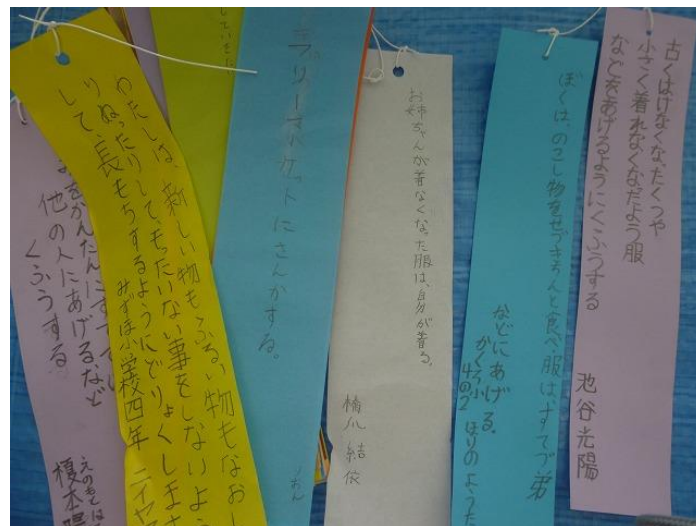 古くはけなくなったくつや
小さく着れなくなだよう服
などをあげるようにくふうする
池谷光陽
ぼくは、のこし物をせずきちんと食べ服は、すてづ弟
などにあげる。
4の2
お姉ちゃんが着なくなった服は、自分が着る。
橋爪結依
フリーマーケットにさんかする。
りおん
していきたい
わたしは、新しい物もふるい物もなおし
りぬったりして、もったいない事をしないよう
して、長もちするようにどりょくします
みずほ小学校四年
をかんたんにすて
他の人にあげるなど
くふうする。
えのもとは
榎本陽